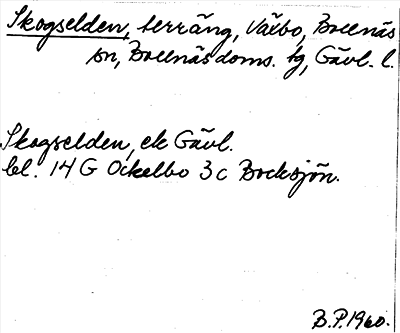 Skogselden, terräng, Växbo, Bollnäs
sn, Bollnäs doms. tg, Gävl. l.
Skogselden, ek Gävl.
bl. 14 G Ockelbo 3c Bocksjön.
B.P. 1960.